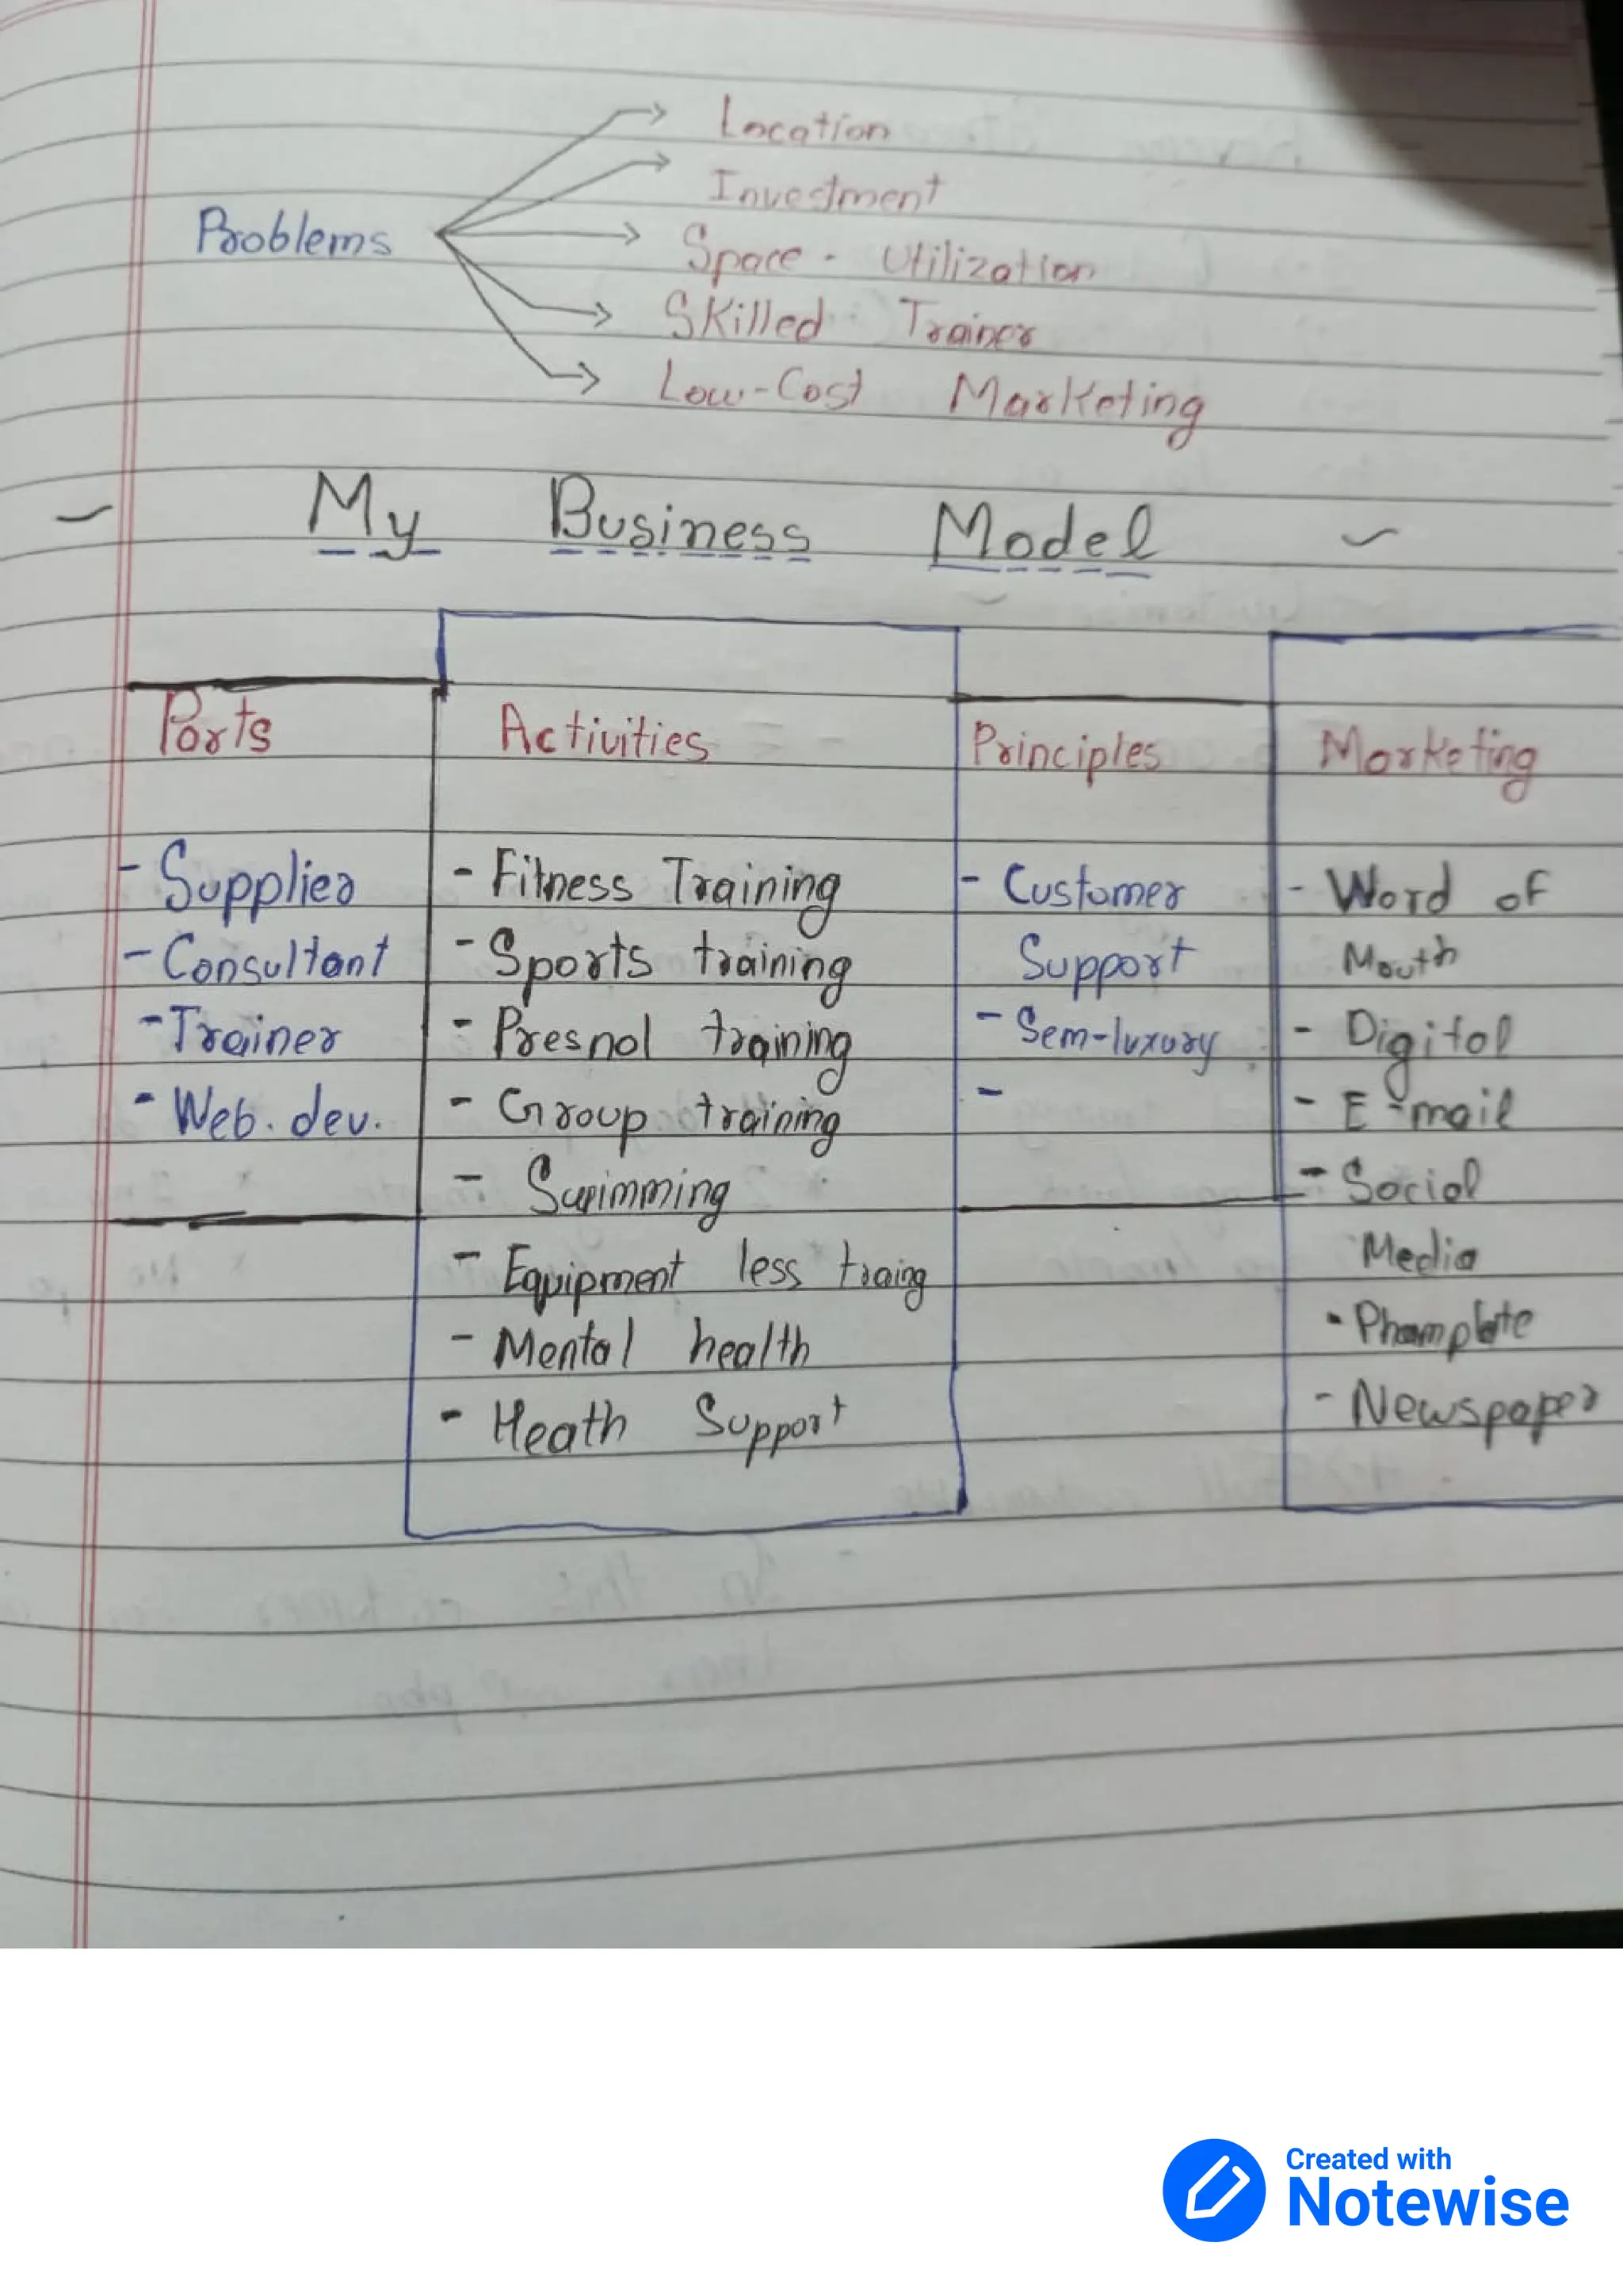 Location
Investment
Problems
Space - Utilization
Skilled Trainer
Low-Cost Marketing
~ My Business Model ~
Parts
Activities
Principles
Marketing
- Supplier
- Consultant
- Trainer
- Web. dev.
- Fitness Training
- Sports training
- Presnal training
- Group training
- Swimming
- Equipment less traing
- Mental health
- Heath Support
- Customer
Support
- Sem-luxury
-
- Word of
Mouth
- Digital
- E-mail
- Social
Media
- Phamplate
- Newspaper
Created with
Notewise